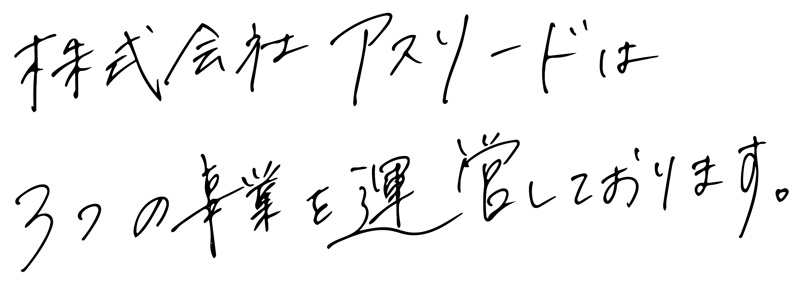 株式会社アスリードは
3つの事業を運営しております。